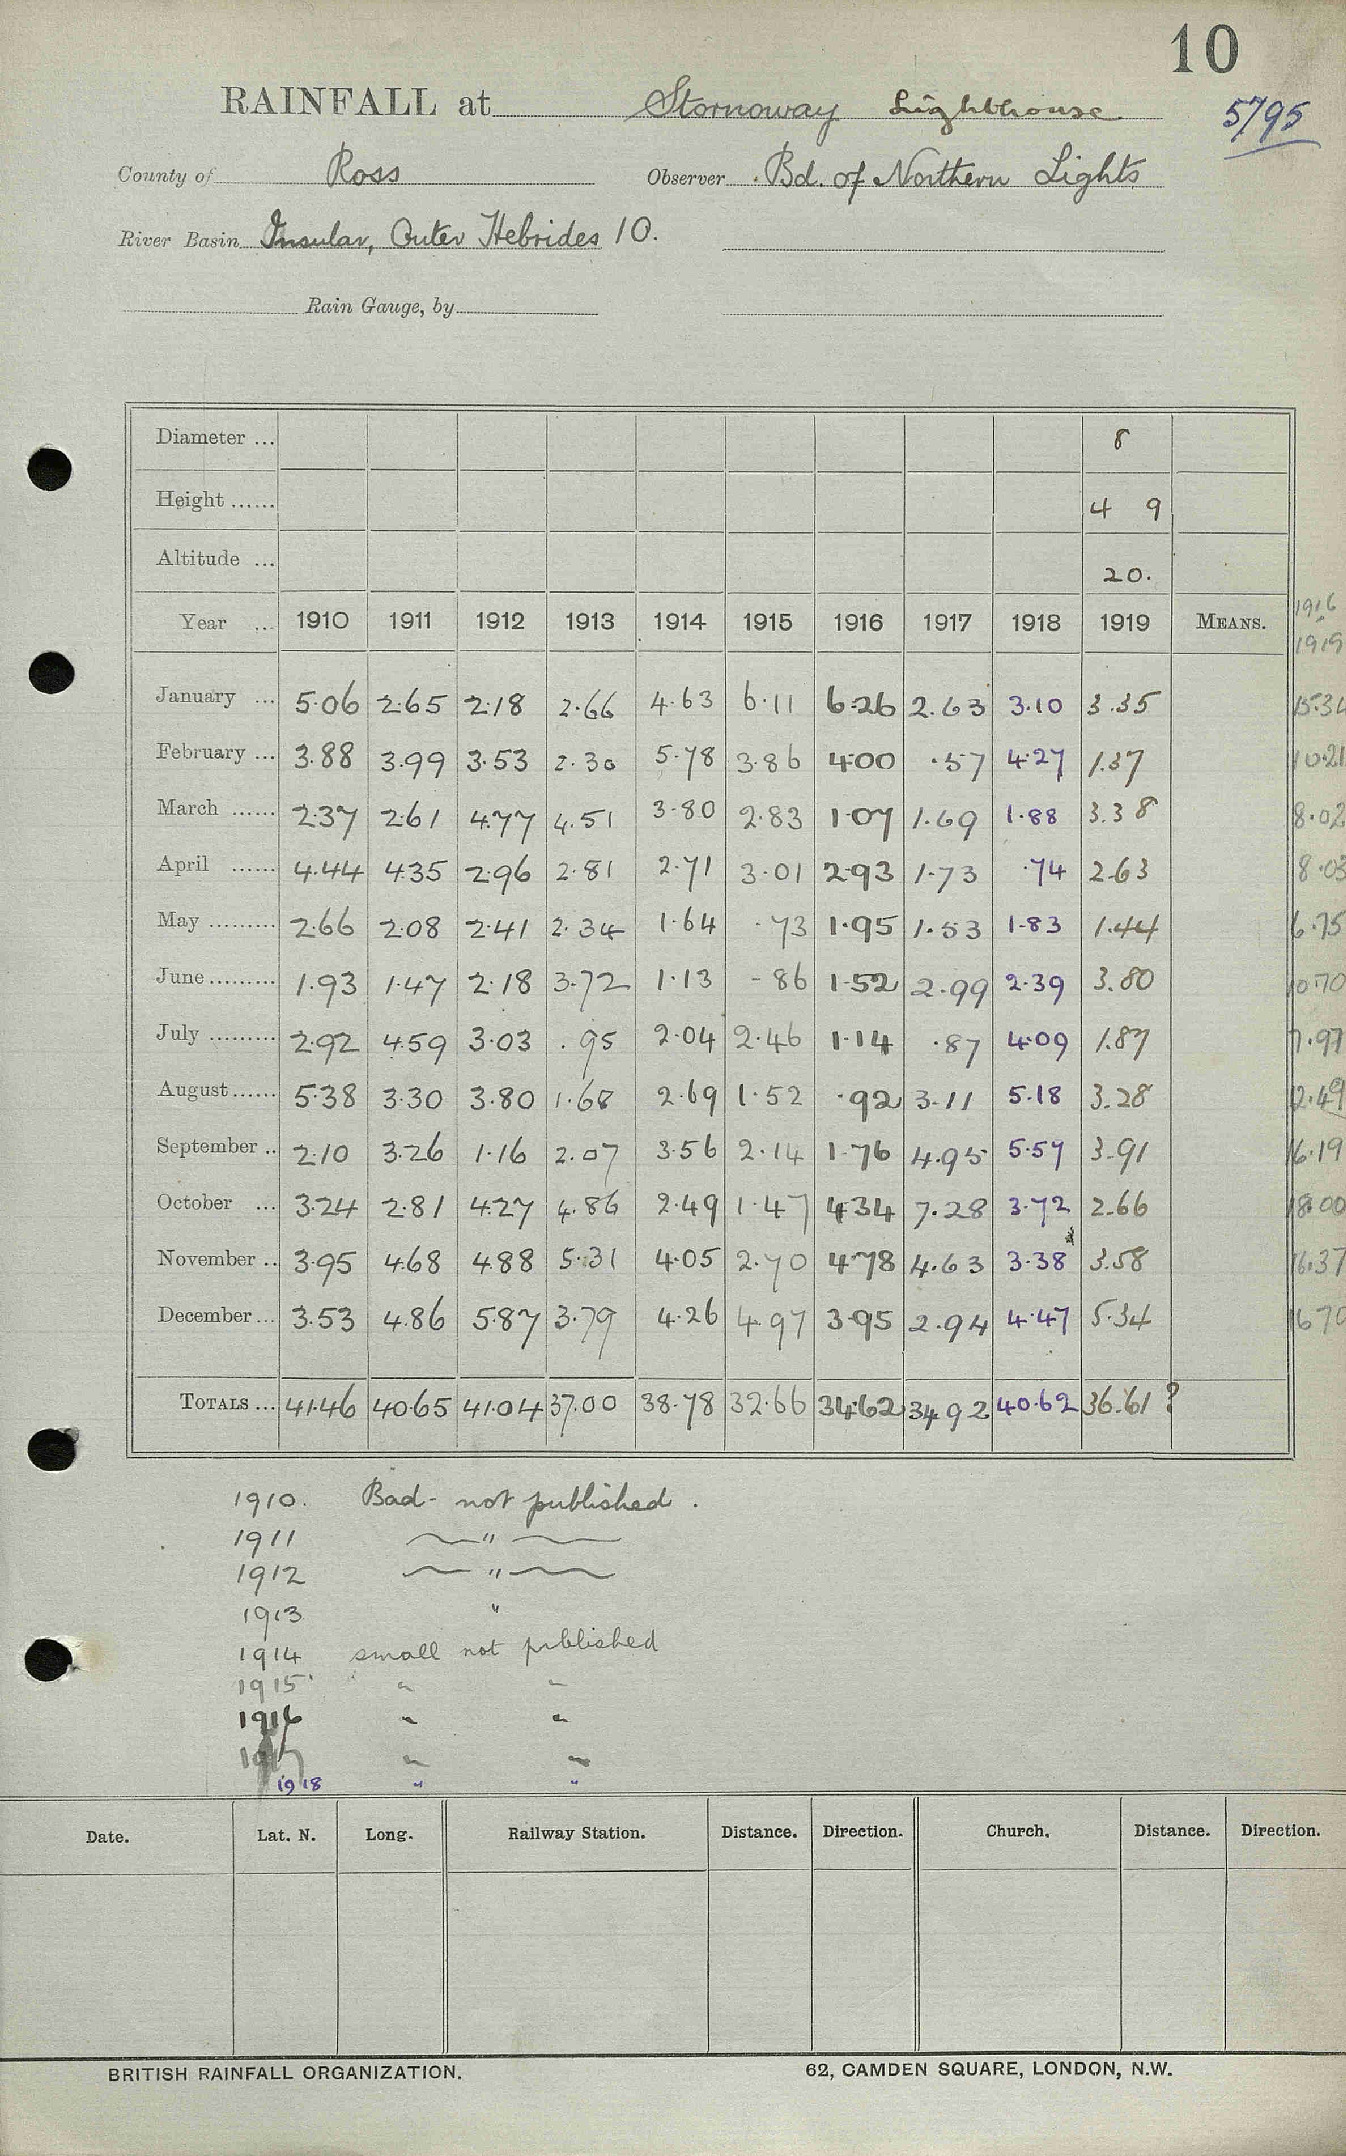 10
RAINFALL at Stornoway Lighthouse 5795
County of Ross Observer Bd. of Northern Lights
River Basin Insular, Outer Hebrides 10.
Rain Gauge, by
Diameter ... 8
Height ...... 4 9
Altitude ... 20.
Year ... 1910 1911 1912 1913 1914 1915 1916 1917 1918 1919 MEANS. 1916 1919
January ... 5.06 2.65 2.18 2.66 4.63 6.11 6.26 2.63 3.10 3.35 15.34
February ... 3.88 3.99 3.53 2.30 5.78 3.86 4.00 .57 4.27 1.37 10.21
March ...... 2.37 2.61 4.77 4.51 3.80 2.83 1.07 1.69 1.88 3.38 8.02
April ...... 4.44 4.35 2.96 2.81 2.71 3.01 2.93 1.73 .74 2.63 8.03
May ......... 2.66 2.08 2.41 2.34 1.64 .73 1.95 1.53 1.83 1.44 6.75
June......... 1.93 1.47 2.18 3.72 1.13 .86 1.52 2.99 2.39 3.80 10.70
July ......... 2.92 4.59 3.03 .95 2.04 2.46 1.14 .87 4.09 1.87 7.97
August...... 5.38 3.30 3.80 1.68 2.69 1.52 .92 3.11 5.18 3.28 12.49
September .. 2.10 3.26 1.16 2.07 3.56 2.14 1.76 4.95 5.57 3.91 16.19
October ... 3.24 2.81 4.27 4.86 2.49 1.47 4.34 7.28 3.72 2.66 18.00
November .. 3.95 4.68 4.88 5.31 4.05 2.70 4.78 4.63 3.38 3.58 16.37
December... 3.53 4.86 5.87 3.79 4.26 4.97 3.95 2.94 4.47 5.34 16.70
TOTALS ... 41.46 40.65 41.04 37.00 38.78 32.66 34.62 34.92 40.62 36.61 ?
1910. Bad - not published.
1911 "
1912 "
1913 "
1914 small not published
1915 " "
1916 " "
1917 " "
1918 " "
Date. Lat. N. Long. Railway Station. Distance. Direction. Church. Distance. Direction.
BRITISH RAINFALL ORGANIZATION. 62, CAMDEN SQUARE, LONDON, N.W.